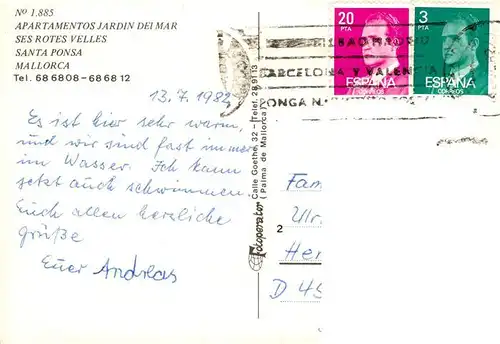 Nº 1.885
APARTAMENTOS JARDIN DEL MAR
SES ROTES VELLES
SANTA PONSA
MALLORCA
Tel. 686808-686812
13.7.1982
Es ist hier sehr warm,
und wir sind fast immer
im Wasser. Ich kann
jetzt auch schwimmen.
Euch allen herzliche
Grüße
Euer Andreas
Fotoperator
Calle Goethe, 32 - Telef. 28 91 13
( Palma de Mallorca )
20
PTA
ESPAÑA
CORREOS
3
PTA
ESPAÑA
CORREOS
BILBAO MADRID
BARCELONA Y VALENCIA
PONGA N.
Fam
Ulr
2
Her
D 45